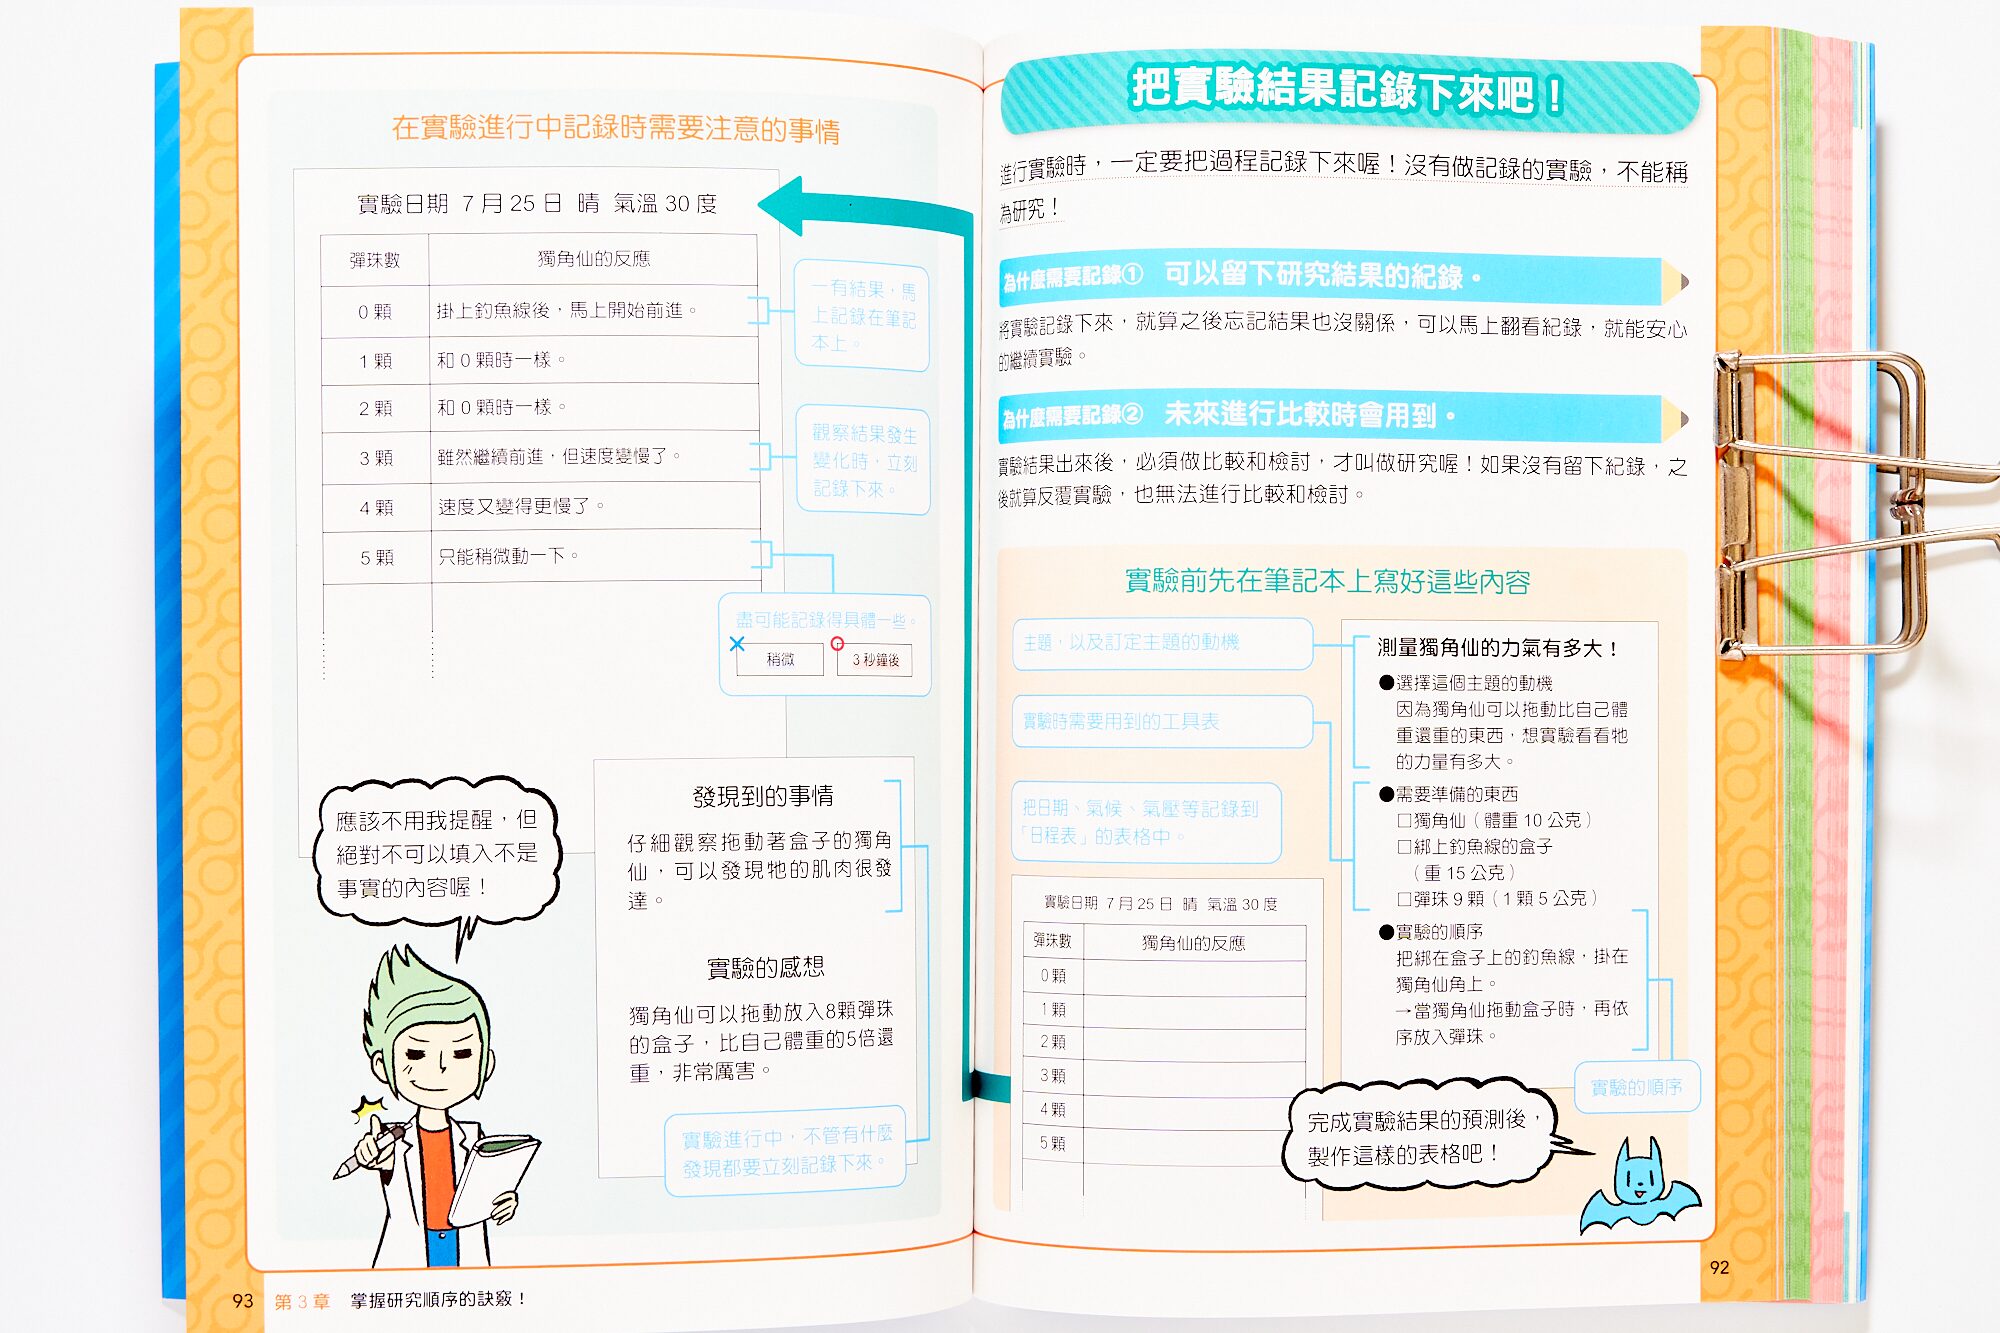 把實驗結果記錄下來吧！
進行實驗時，一定要把過程記錄下來喔！沒有做記錄的實驗，不能稱
為研究！
為什麼需要記錄① 可以留下研究結果的紀錄。
將實驗記錄下來，就算之後忘記結果也沒關係，可以馬上翻看紀錄，就能安心
的繼續實驗。
為什麼需要記錄② 未來進行比較時會用到。
實驗結果出來後，必須做比較和檢討，才叫做研究喔！如果沒有留下紀錄，之
後就算反覆實驗，也無法進行比較和檢討。
實驗前先在筆記本上寫好這些內容
主題，以及訂定主題的動機
實驗時需要用到的工具表
把日期、氣候、氣壓等記錄到
「日程表」的表格中。
測量獨角仙的力氣有多大！
●選擇這個主題的動機
因為獨角仙可以拖動比自己體
重還重的東西，想實驗看看牠
的力量有多大。
●需要準備的東西
□獨角仙（體重 10 公克）
□綁上釣魚線的盒子
（重 15 公克）
□彈珠 9 顆（1 顆 5 公克）
●實驗的順序
把綁在盒子上的釣魚線，掛在
獨角仙角上。
→當獨角仙拖動盒子時，再依
序放入彈珠。
實驗的順序
實驗日期 7 月 25 日 晴 氣溫 30 度
彈珠數 獨角仙的反應
0 顆
1 顆
2 顆
3 顆
4 顆
5 顆
完成實驗結果的預測後，
製作這樣的表格吧！
92
在實驗進行中記錄時需要注意的事情
實驗日期 7 月 25 日 晴 氣溫 30 度
彈珠數 獨角仙的反應
0 顆 掛上釣魚線後，馬上開始前進。
1 顆 和 0 顆時一樣。
2 顆 和 0 顆時一樣。
3 顆 雖然繼續前進，但速度變慢了。
4 顆 速度又變得更慢了。
5 顆 只能稍微動一下。
一有結果，馬
上記錄在筆記
本上。
觀察結果發生
變化時，立刻
記錄下來。
盡可能記錄得具體一些。
稍微 3 秒鐘後
發現到的事情
仔細觀察拖動著盒子的獨角
仙，可以發現牠的肌肉很發
達。
實驗的感想
獨角仙可以拖動放入8顆彈珠
的盒子，比自己體重的5倍還
重，非常厲害。
實驗進行中，不管有什麼
發現都要立刻記錄下來。
應該不用我提醒，但
絕對不可以填入不是
事實的內容喔！
93 第 3 章 掌握研究順序的訣竅！